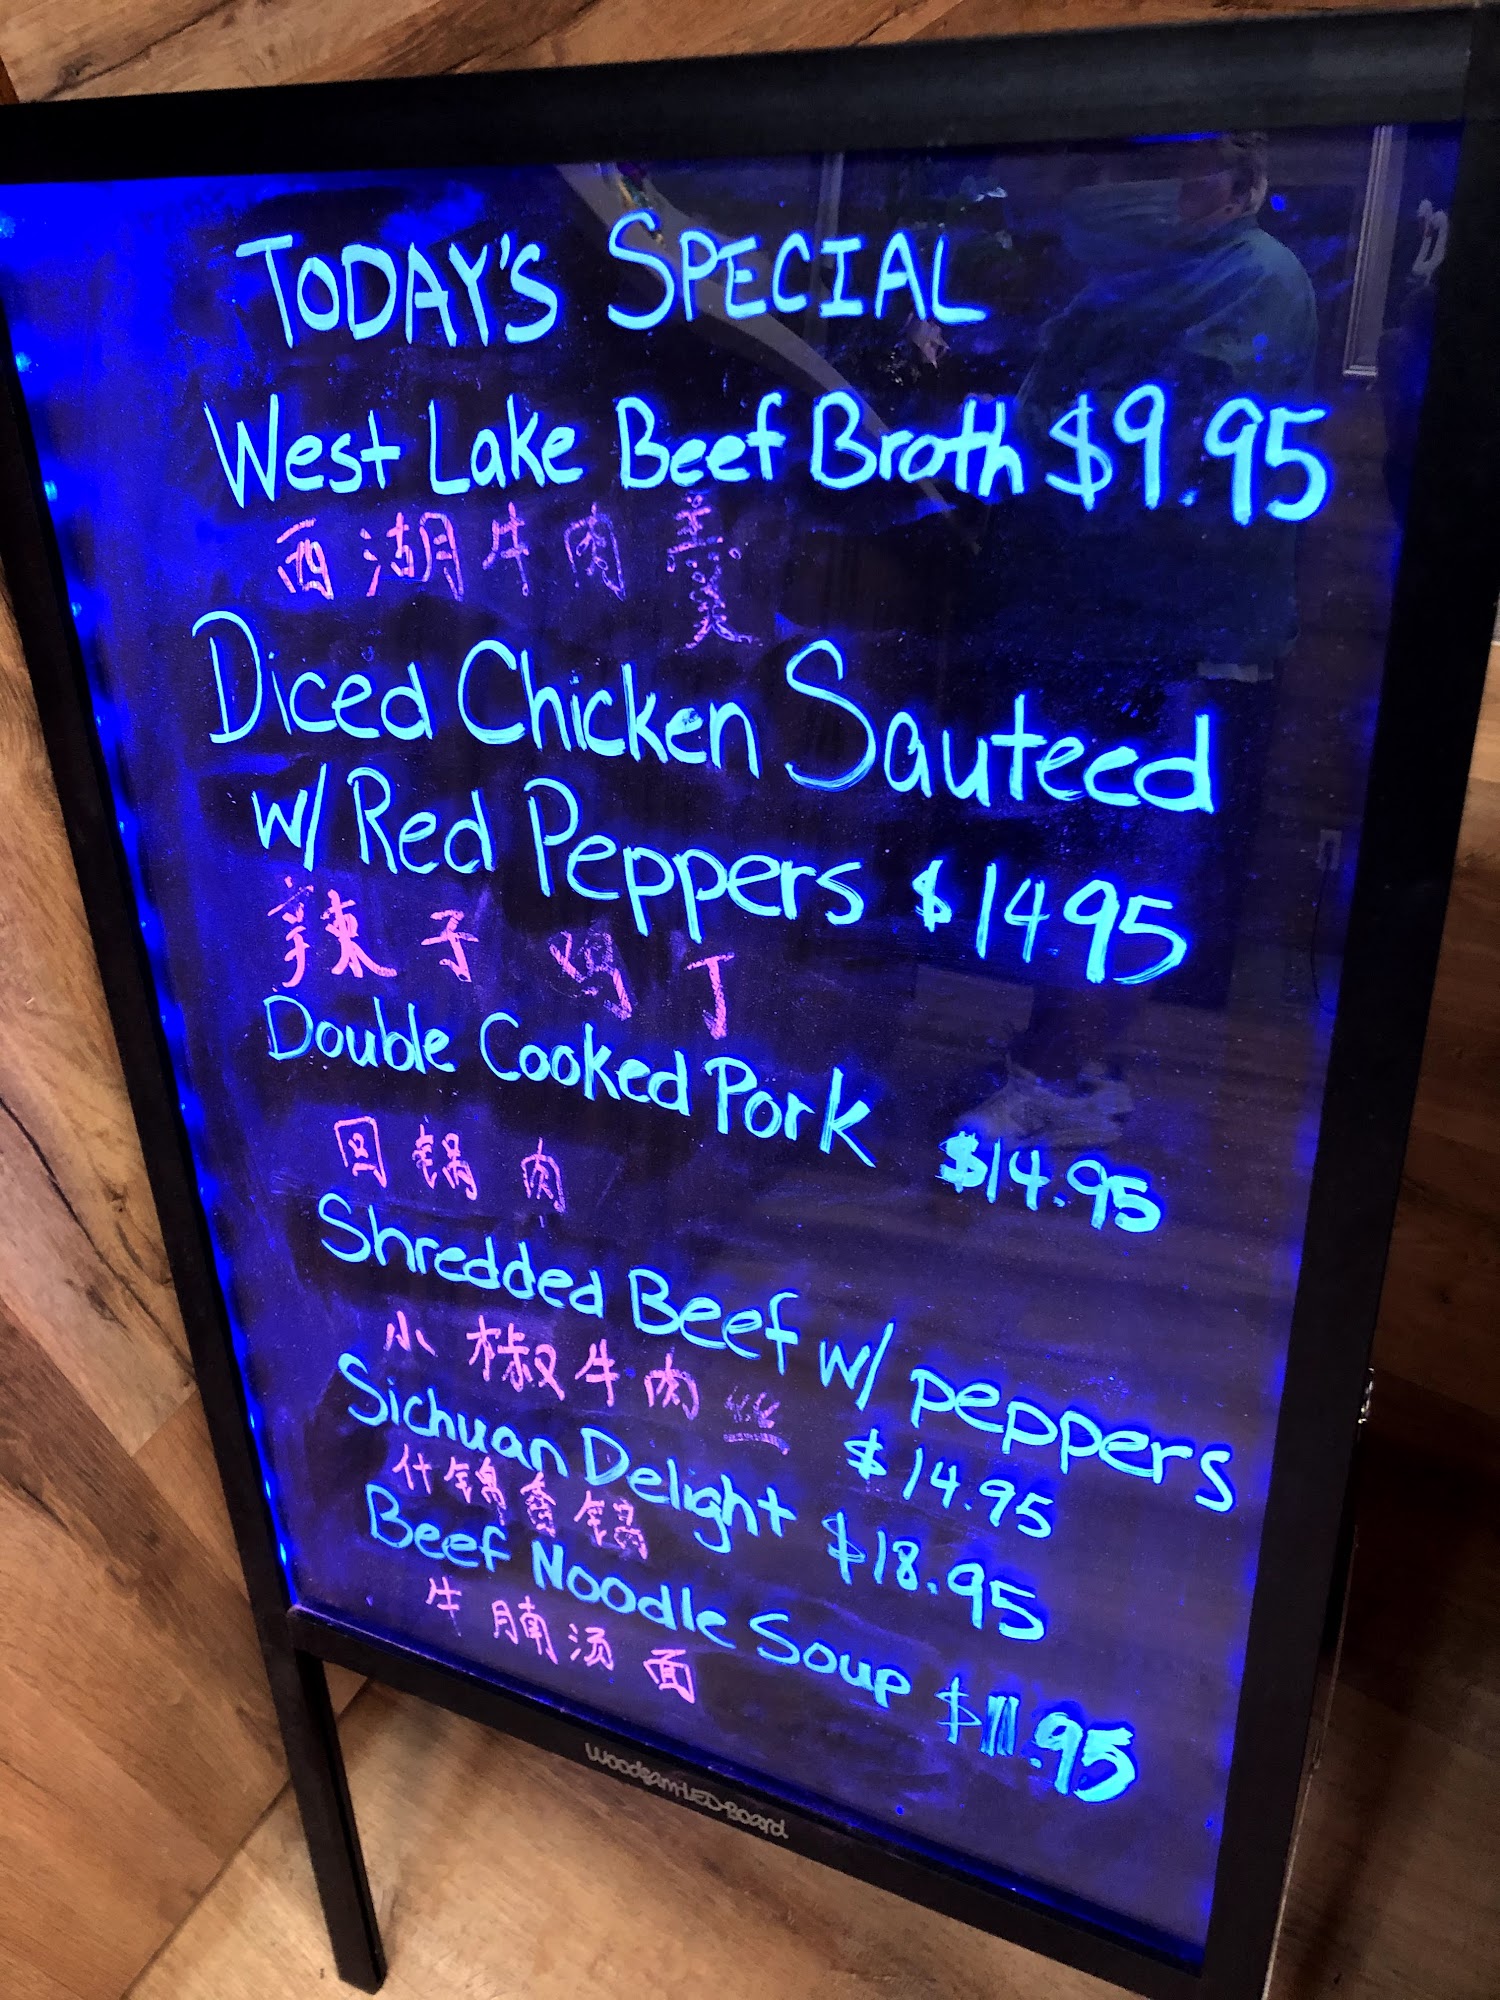 TODAY'S SPECIAL
West Lake Beef Broth $9.95
西湖牛肉羹
Diced Chicken Sauteed
w/ Red Peppers $1495
辣子鸡丁
Double Cooked Pork $14.95
回锅肉
Shredded Beef w/ peppers
小椒牛肉丝 $14.95
Sichuan Delight $18.95
什锦香锅
Beef Noodle Soup $11.95
牛腩汤面
Woodsam-LED-Board